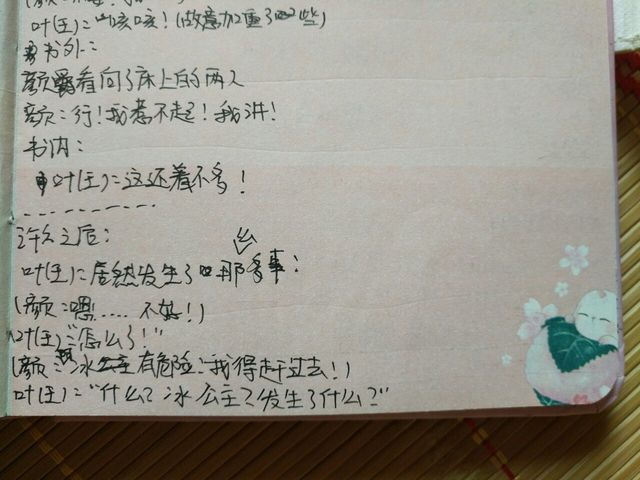 叶(王)="咳咳！(故意加重了一些)
书外：
颜看向了床上的两人
颜：行！我惹不起！我讲！
书内：
叶(王)=这还差不多！
许久之后：
叶(王)=居然发生了那么多事：
(颜：嗯!…… 不好！)
叶(王)="怎么了！"
(颜：冰公主有危险：我得赶过去！)
叶(王)="什么？冰公主？发生了什么？"